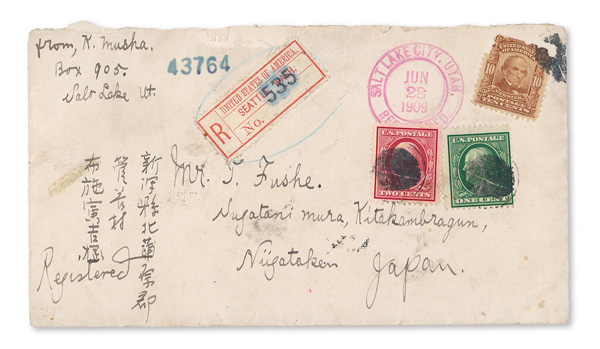 from, K. Musha.
Box 905.
Salt Lake Ut.
43764
UNITED STATES OF AMERICA.
SEATTLE,
R
No. 535
SALT LAKE CITY, UTAH.
JUN
28
1909
REGISTERED.
10
10
U.S. POSTAGE
TWO CENTS
U.S. POSTAGE
ONE CENT
Mr. T. Fushe.
Sugatani mura, Kitakambragun,
Niigataken Japan.
新潟縣北蒲原郡
菅谷村
布施寅吉
Registered